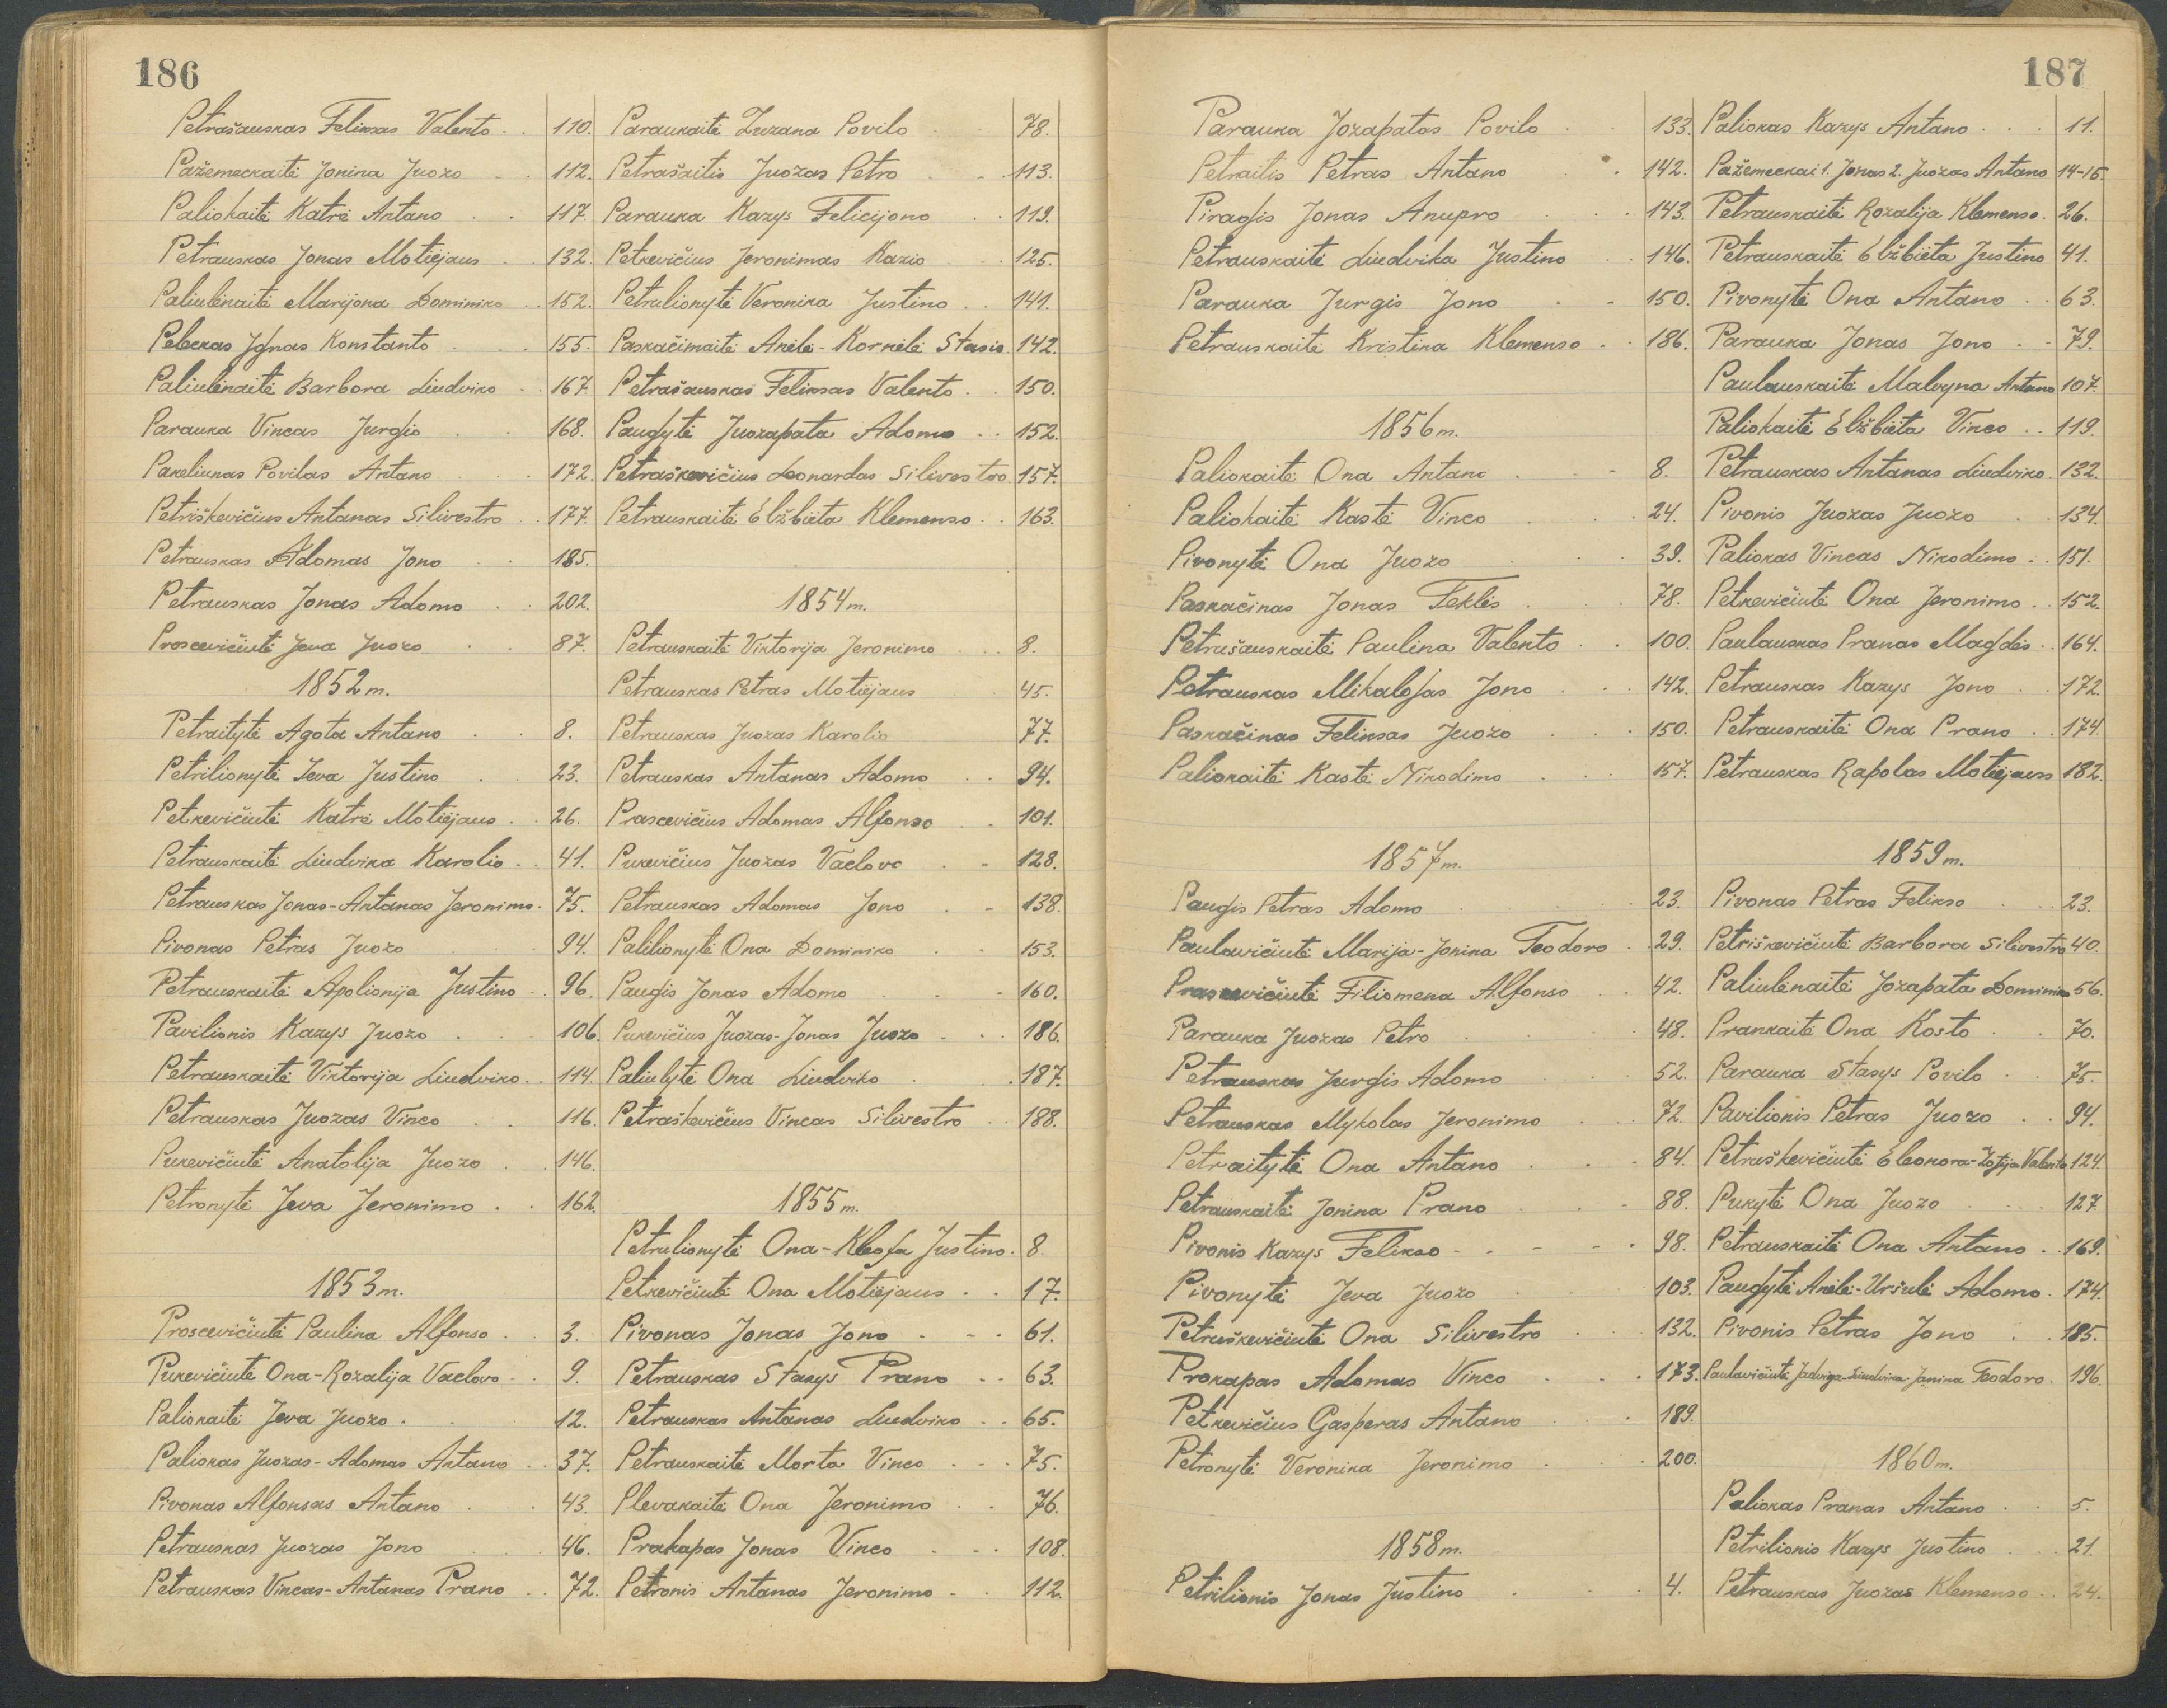 186
Petrašauskas Feliksas Valento 110.
Pažemeckaitė Jonina Juozo 112.
Paliokaitė Katrė Antano 117.
Petrauskas Jonas Motiejaus 132.
Paliulėnaitė Marijona Dominiko 152.
Pebekas Ignas Konstanto 155.
Paliulėnaitė Barbora Liudviko 167.
Parauka Vincas Jurgio 168.
Pakeliunas Povilas Antano 172.
Petriškevičius Antanas Silivestro 177.
Petrauskas Adomas Jono 185.
Petrauskas Jonas Adomo 202.
Proscevičiutė Jeva Juozo 87.
1852 m.
Petraitytė Agota Antano 8.
Petrilionytė Ieva Justino 23.
Petkevičiutė Katrė Motiejaus 26.
Petrauskaitė Liudvika Karolio 41.
Petrauskas Jonas-Antanas Jeronimo 75.
Pivonas Petras Juozo 94.
Petrauskaitė Apolionija Justino 96.
Pavilionis Kazys Juozo 106.
Petrauskaitė Viktorija Liudviko 114.
Petrauskas Juozas Vinco 116.
Pukevičiutė Anatolija Juozo 146.
Petronytė Jeva Jeronimo 162.
1853 m.
Proscevičiutė Paulina Alfonso 3.
Pukevičiutė Ona-Rozalija Vaclovo 9.
Paliokaitė Jeva Juozo 12.
Paliokas Juozas-Adomas Antano 37.
Pivonas Alfonsas Antano 43.
Petrauskas Juozas Jono 46.
Petrauskas Vincas-Antanas Prano 72.
Paraukaitė Zuzana Povilo 78.
Petrašaitis Juozas Petro 113.
Parauka Kazys Felicijono 119.
Petkevičius Jeronimas Kazio 125.
Petrulionytė Veronika Justino 141.
Paskačimaitė Anelė-Kornelė Stasio 142.
Petrašauskas Feliksas Valento 150.
Paugytė Juozapata Adomo 152.
Petraškevičius Leonardas Silivestro 157.
Petrauskaitė Elžbieta Klemenso 163.
1854 m.
Petrauskaitė Viktorija Jeronimo 8.
Petrauskas Petras Motiejaus 45.
Petrauskas Juozas Karolio 77.
Petrauskas Antanas Adomo 94.
Prascevičius Adomas Alfonso 101.
Pukevičius Juozas Vaclovo 128.
Petrauskas Adomas Jono 138.
Palilionytė Ona Dominiko 153.
Paugis Jonas Adomo 160.
Pukevičius Juozas-Jonas Juozo 186.
Paliulytė Ona Liudviko 187.
Petraškevičius Vincas Silivestro 188.
1855 m.
Petrulionytė Ona-Kleofa Justino 8.
Petkevičiutė Ona Motiejaus 17.
Pivonas Jonas Jono 61.
Petrauskas Stasys Prano 63.
Petrauskas Antanas Liudviko 65.
Petrauskaitė Morta Vinco 75.
Plevakaitė Ona Jeronimo 76.
Prakapas Jonas Vinco 108.
Petronis Antanas Jeronimo 112.
187
Parauka Jozapatas Povilo 133.
Petraitis Petras Antano 142.
Piragis Jonas Anupro 143.
Petrauskaitė Liudvika Justino 146.
Parauka Jurgis Jono 150.
Petrauskaitė Kristina Klemenso 186.
1856 m.
Paliokaitė Ona Antano 8.
Paliokaitė Kastė Vinco 24.
Pivonytė Ona Juozo 39.
Paskačinas Jonas Teklės 78.
Petrušauskaitė Paulina Valento 100.
Petrauskas Mikalojas Jono 142.
Paskačinas Feliksas Juozo 150.
Paliokaitė Kastė Nikodimo 157.
1857 m.
Paugis Petras Adomo 23.
Paulavičiutė Marija-Jonina Teodoro 29.
Prascevičiutė Filiomena Alfonso 42.
Parauka Juozas Petro 48.
Petrauskas Jurgis Adomo 52.
Petrauskas Mykolas Jeronimo 72.
Petraitytė Ona Antano 84.
Petrauskaitė Jonina Prano 88.
Pivonis Kazys Felikso 98.
Pivonytė Jeva Juozo 103.
Petruškevičiutė Ona Silivestro 132.
Prokapas Adomas Vinco 173.
Petkevičius Gasperas Antano 189.
Petronytė Veronika Jeronimo 200.
1858 m.
Petrilionis Jonas Justino 4.
Paliokas Kazys Antano 11.
Pažemeckai 1. Jonas 2. Juozas Antano 14-15.
Petrauskaitė Rozalija Klemenso 26.
Petrauskaitė Elžbieta Justino 41.
Pivonytė Ona Antano 63.
Parauka Jonas Jono 79.
Paulauskaitė Malvyna Antano 107.
Paliokaitė Elžbieta Vinco 119.
Petrauskas Antanas Liudviko 132.
Pivonis Juozas Juozo 134.
Paliokas Vincas Nikodimo 151.
Petkevičiutė Ona Jeronimo 152.
Paulauskas Pranas Magdės 164.
Petrauskas Kazys Jono 172.
Petrauskaitė Ona Prano 174.
Petrauskas Rapolas Motiejaus 182.
1859 m.
Pivonas Petras Felikso 23.
Petriškevičiutė Barbora Silivestro 40.
Paliulėnaitė Jozapata Dominiko 56.
Prankaitė Ona Kosto 70.
Parauka Stasys Povilo 75.
Pavilionis Petras Juozo 94.
Petruškevičiutė Eleonora-Zofija Valento 124.
Pukytė Ona Juozo 127.
Petrauskaitė Ona Antano 169.
Paugytė Anelė-Uršulė Adomo 174.
Pivonis Petras Jono 185.
Paulavičiutė Jadviga-Liudvika-Janina Teodoro 196.
1860 m.
Paliokas Pranas Antano 5.
Petrilionis Kazys Justino 21.
Petrauskas Juozas Klemenso 24.